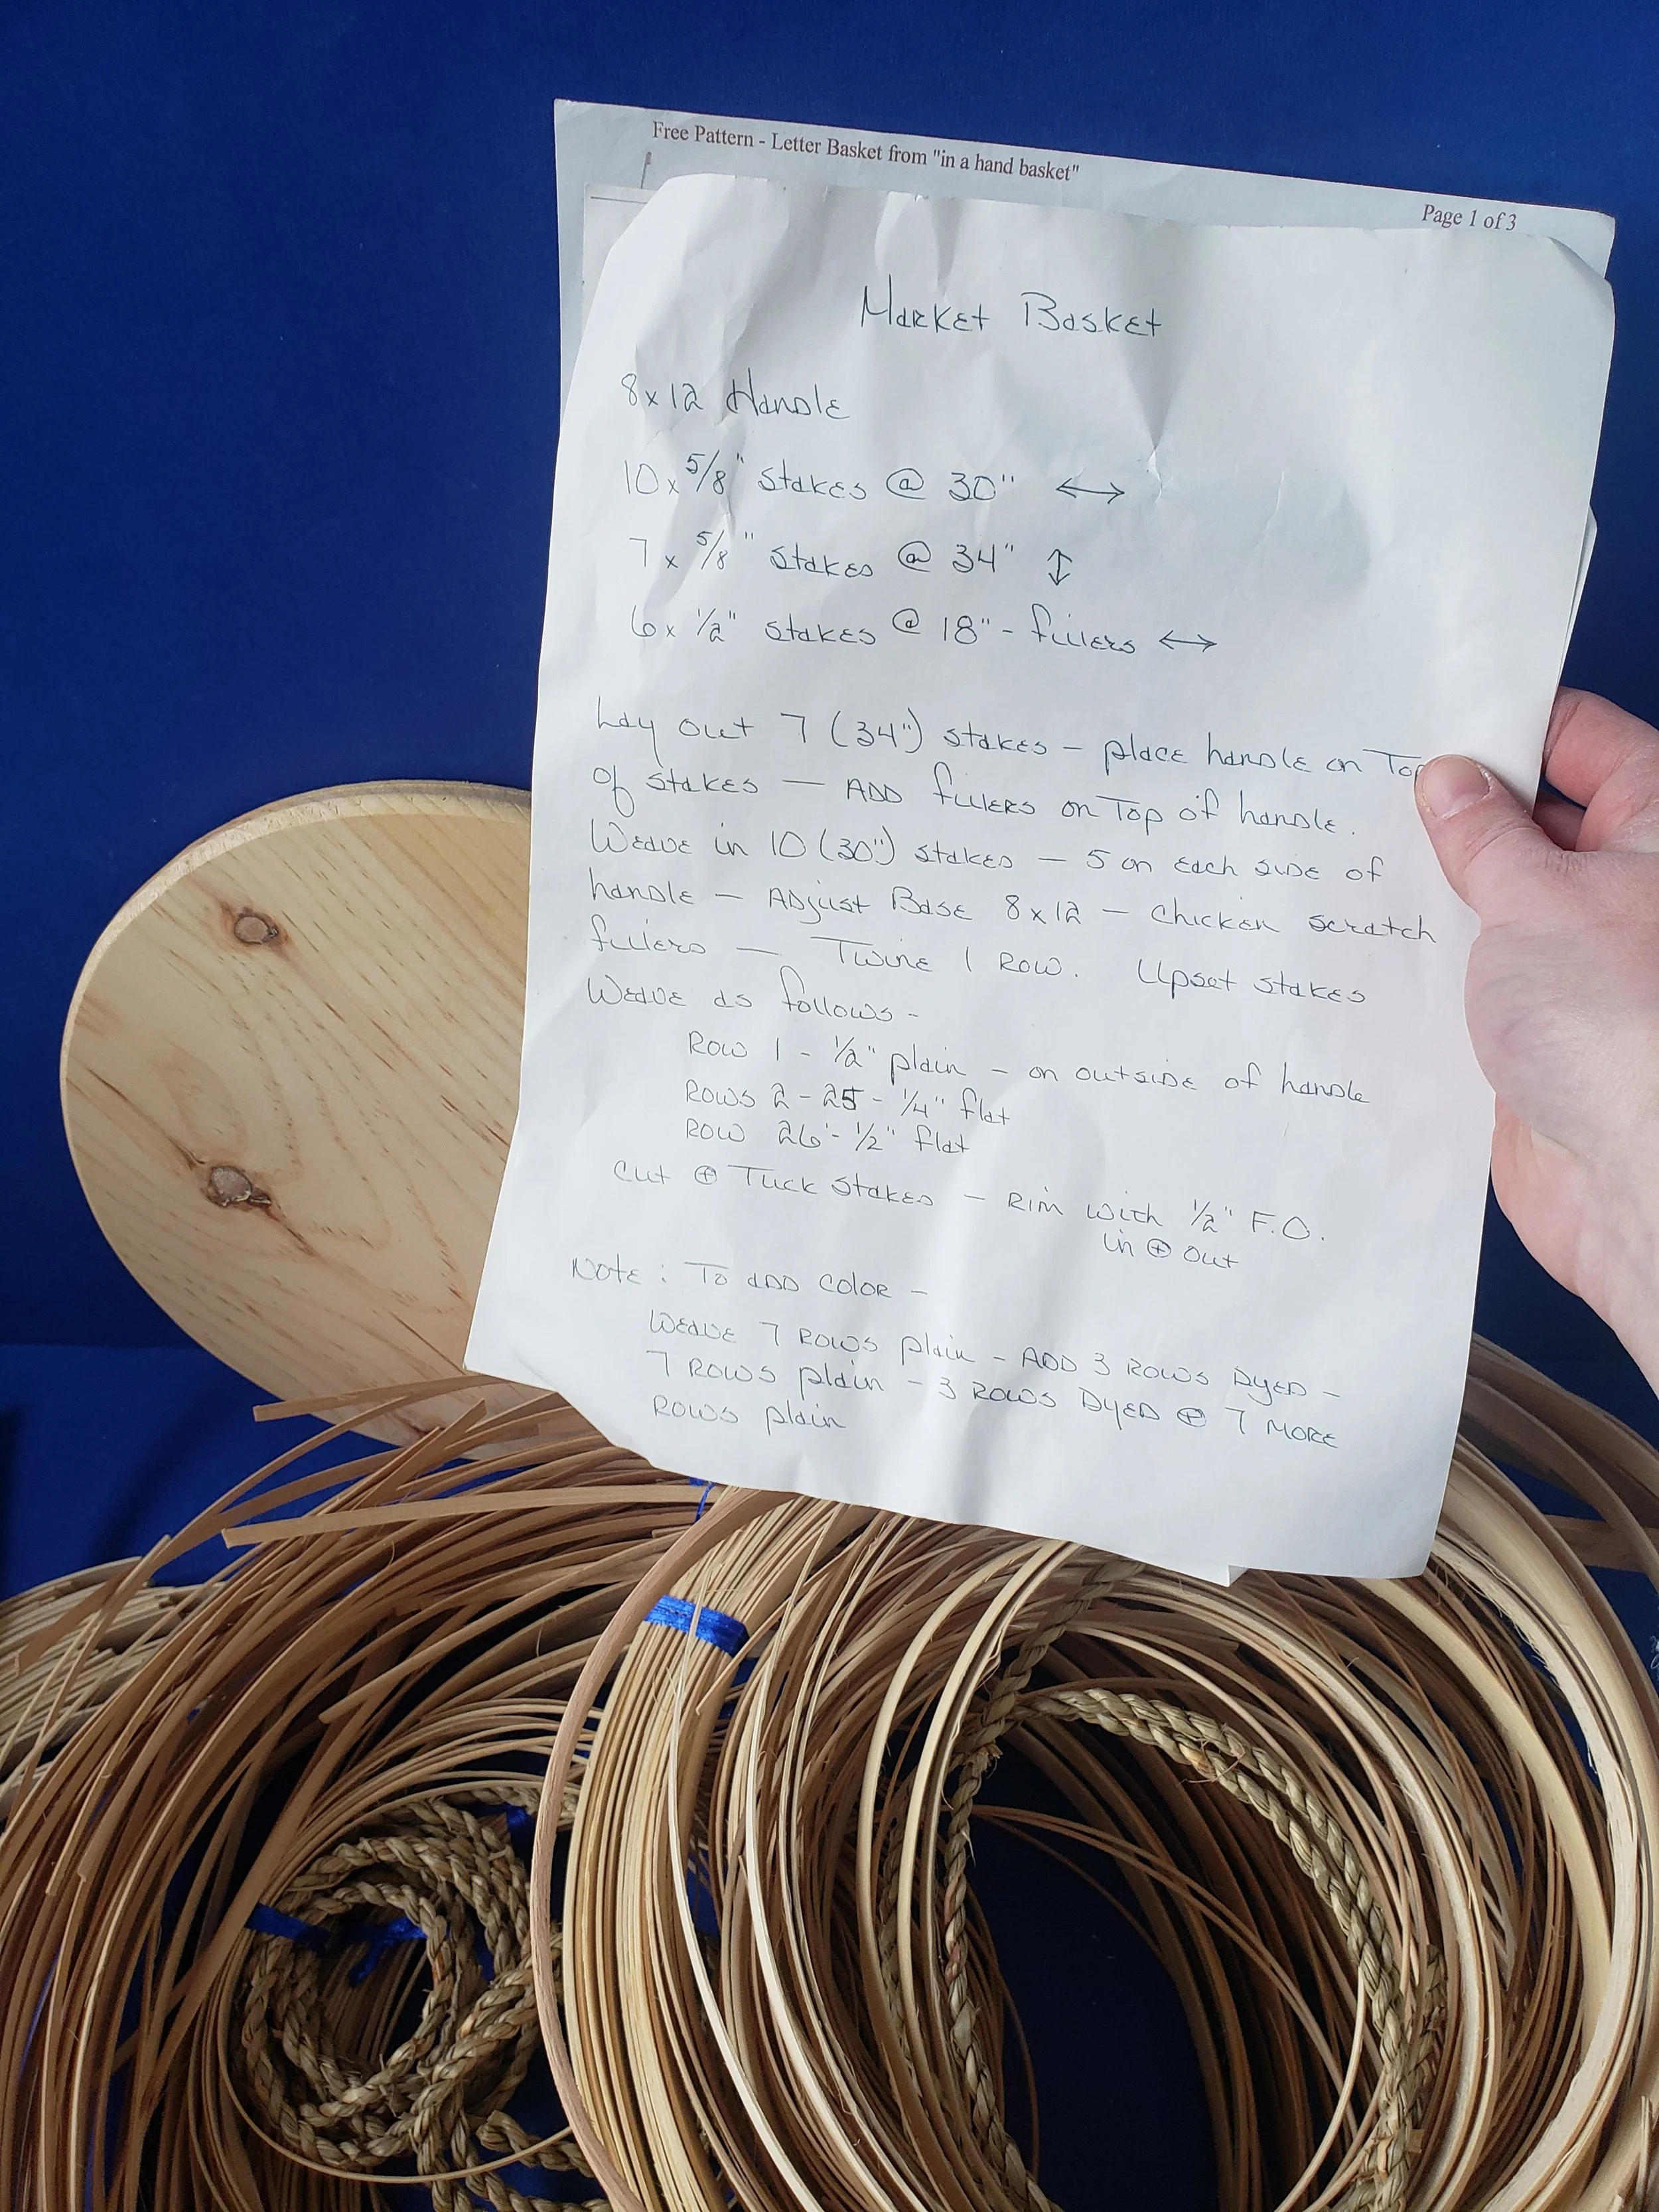 Free Pattern - Letter Basket from "in a hand basket"
Page 1 of 3
Market Basket
8x12 Handle
10 x 5/8" stakes @ 30" ↔
7 x 5/8" stakes @ 34" ↕
6 x 1/2" stakes @ 18" - fillers ↔
Lay out 7 (34") stakes - place handle on Top
of stakes — ADD fillers on Top of handle.
Weave in 10 (30") stakes — 5 on each side of
handle — Adjust Base 8x12 — chicken scratch
fillers — Twine 1 Row. Upset stakes
Weave as follows -
Row 1 - 1/2" plain - on outside of handle
Rows 2 - 25 - 1/4" flat
Row 26 - 1/2" flat
Cut ⊕ Tuck stakes - Rim with 1/2" F.O.
in ⊕ out
Note: To add color -
Weave 7 rows plain - ADD 3 rows Dyed -
7 rows plain - 3 rows Dyed ⊕ 7 more
rows plain